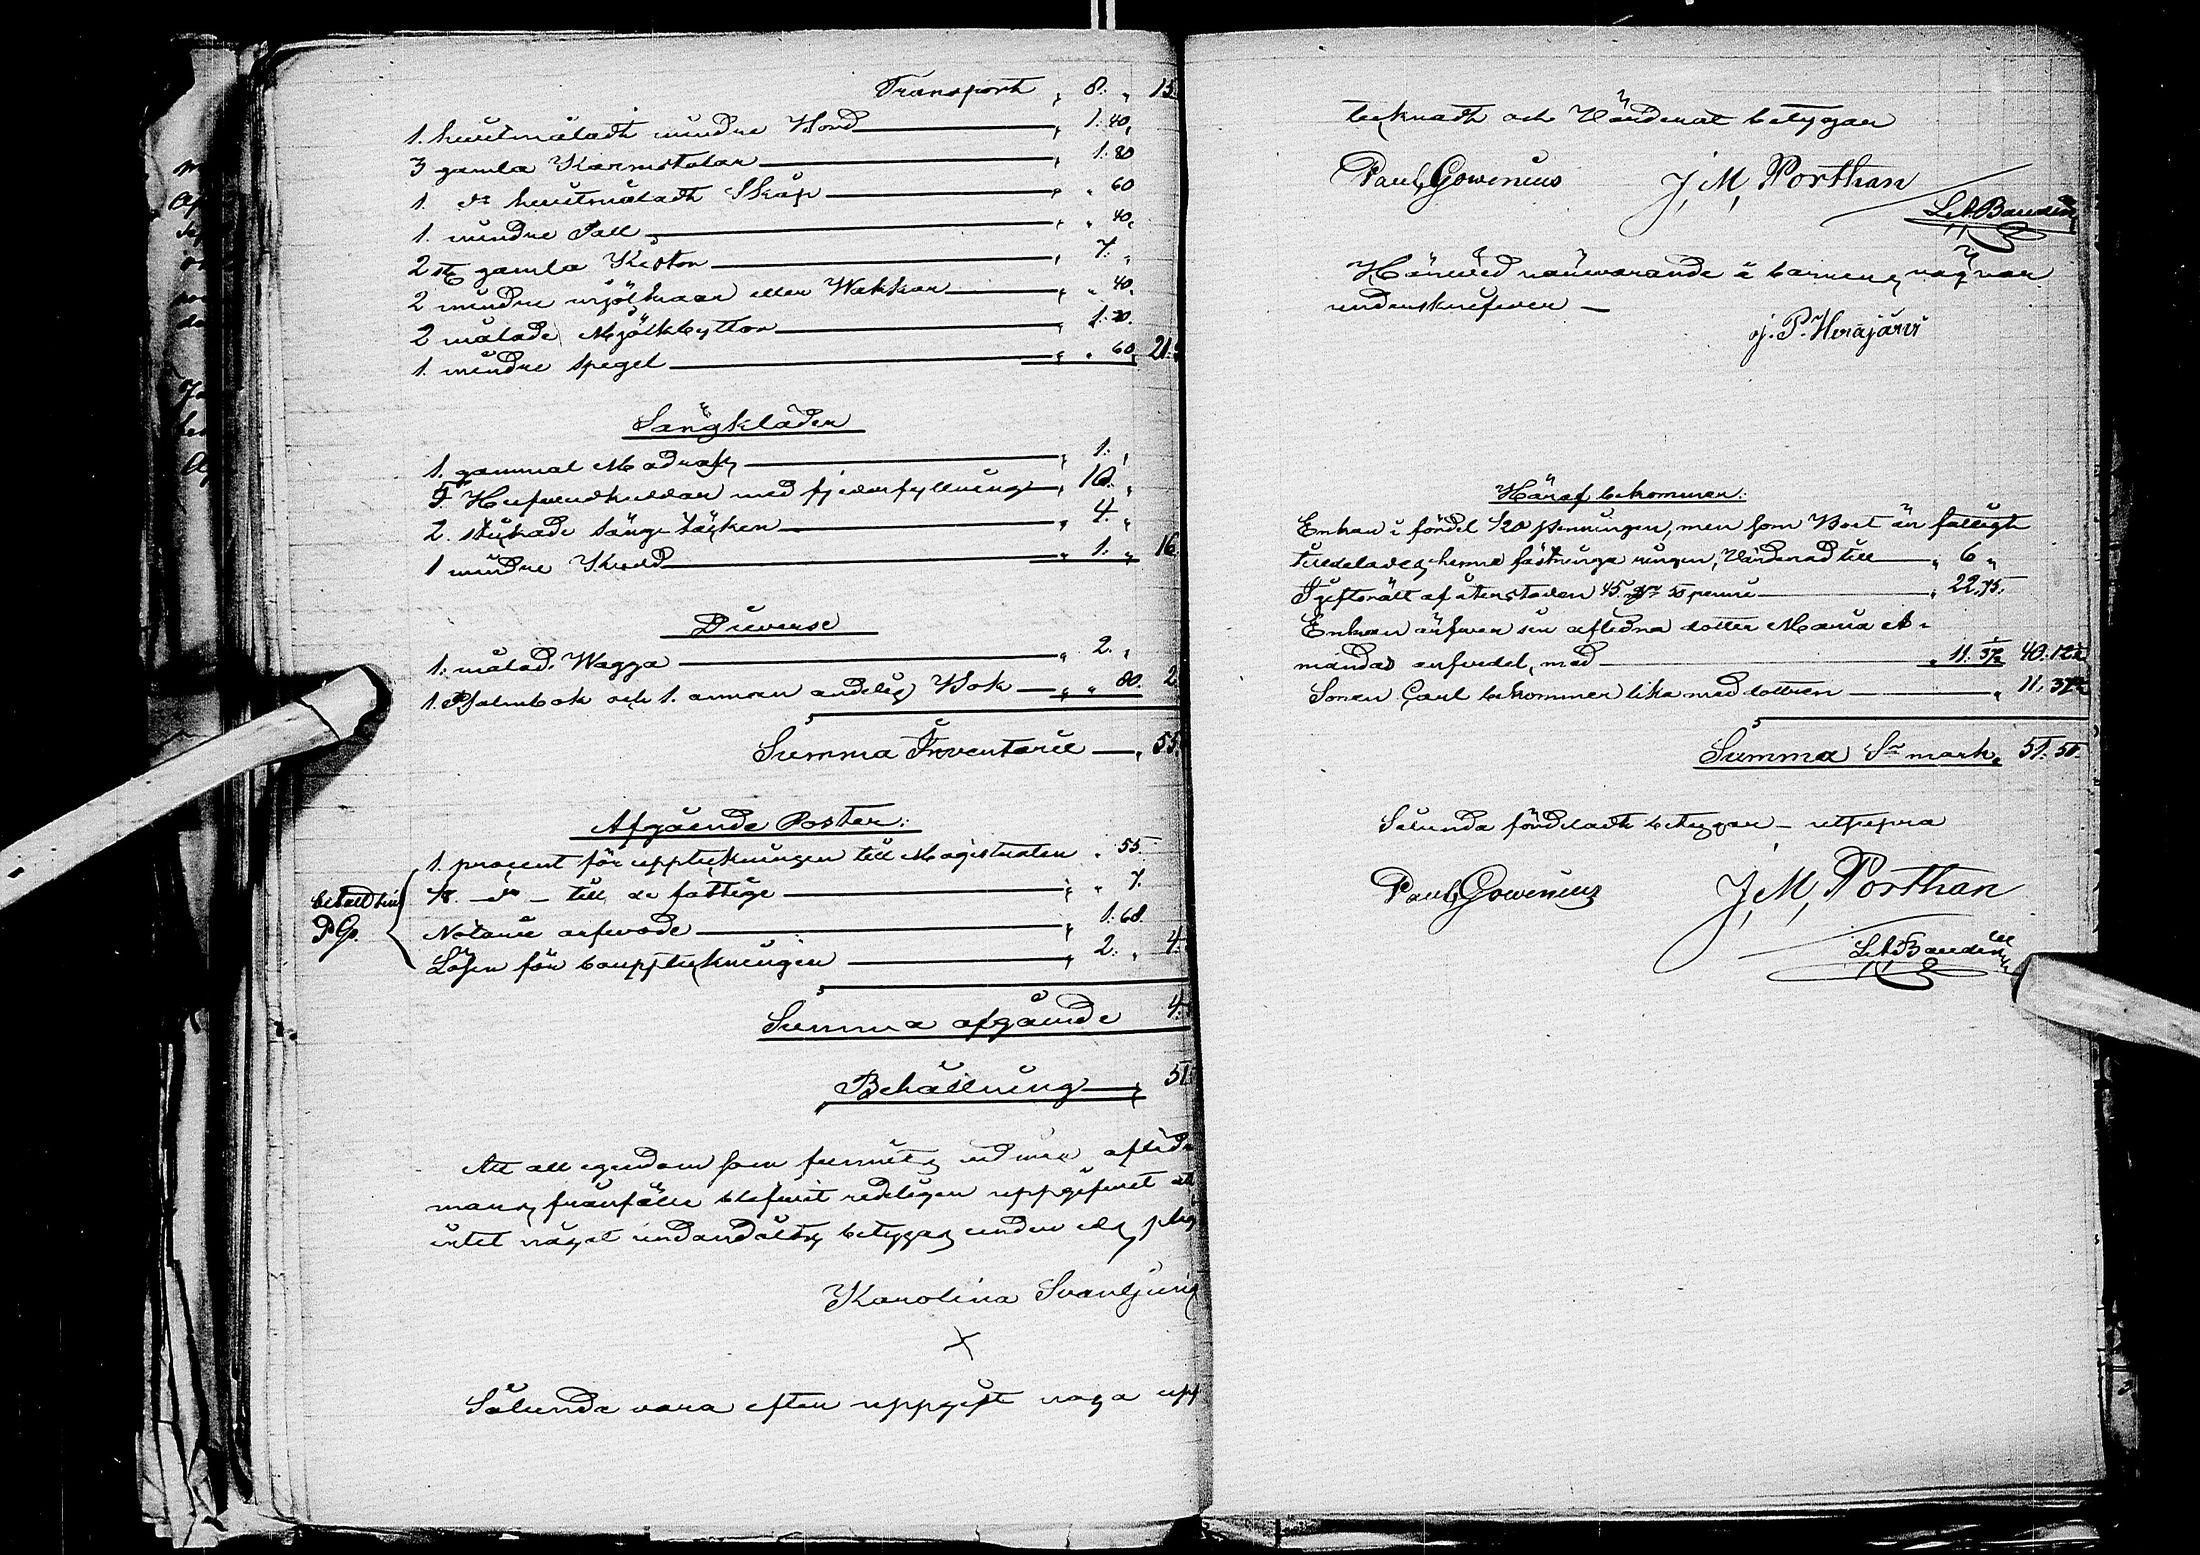 Transport „ 8. „ 15.
1. hvitmåladt mindre Bord „ 1. 40.
3 gamla Karmstolar „ 1. 80
1. d:o hvitmåladt Skåp „ „ 60
1. mindre Pall „ „ 40.
2 st. gamla Kistor „ 7. „
2 mindre mjölkaar eller Wakkor „ „ 40.
2 målade Mjölkbyttor „ 1. 20.
1. mindre spegel „ „ 60. 21.
Sängkläder
1. gammal Madrass „ 1. „
5. Hufvudkuddar med fjederfyllning „ 10. „
2. stickade sängtäcken „ 4. „
1 mindre Kudd „ 1. „ 16.
Diverse
1. målad Wagga „ 2. „
1. Psalmbok och 1. annan andelig Bok „ „ 80. 2.
Summa Inventarie „ 55.
Afgående Poster:
1. procent för uppteckningen till Magistraten „ 55.
1/8 d:o till de fattige „ „ 7.
betald hit
PG.
Notarie arfvode „ 1. 68.
Lösen för bouppteckningen „ 2. „ 4.
Summa afgående 4.
Behållning „ 51.
Att all egendom som funnits vid min aflidne
mans frånfälle blifvit redeligen uppgifvet och
intet något undandöldt betygas under
Karolina Svanljung
X
Sålunda vara efter uppgift noga upp
tecknadt och Värderat betygar
Paul Gowenius J. M. Porthan
L A Bandin
Härvid närwarande å barnens vägnar
underskrifver —
J. P. Herajärvi
Häraf bekommer:
Enkan i fördel 1/20 penningen, men som Boet är fattigt
tilldelades henne fästninge ringen, Värderad till „ 6 „
I giftorätt af återstoden 45. mk 50 penni „ 22. 75.
Enkan ärfver sin aflidna dotter Maria A-
mandas arfvedel, med „ 11. 37 1/2 40. 12 1/2
Sonen Carl bekommer lika med dottren „ 11. 37 1/2
Summa S:a mark 51. 50.
Sålunda fördeladt betygar — utsupra
Paul Gowenius J. M. Porthan
L A Bandin